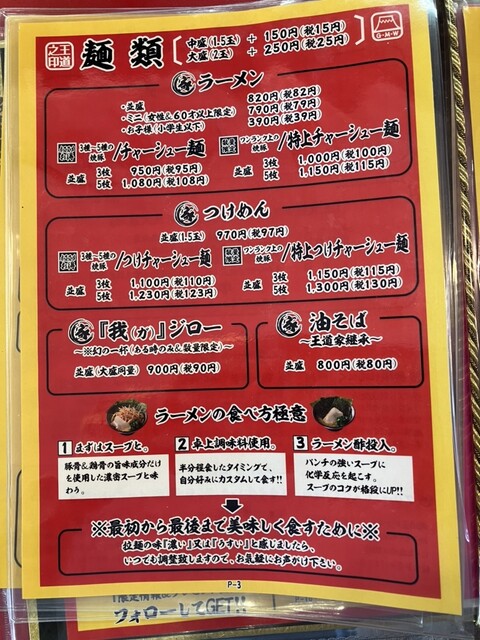 王道之印
麺類
中盛(1.5玉) + 150円(税15円)
大盛(2玉) + 250円(税25円)
G-M-W
家 ラーメン
・並盛 820円(税82円)
・ミニ(女性&60才以上限定) 790円(税79円)
・お子様(小学生以下) 390円(税39円)
3種〜5種の焼豚/チャーシュー麺
並盛 3枚 950円(税95円)
5枚 1,080円(税108円)
数量限定 ワンランク上の焼豚/特上チャーシュー麺
並盛 3枚 1,000円(税100円)
5枚 1,150円(税115円)
家 つけめん
並盛(1.5玉) 970円(税97円)
3種〜5種の焼豚/つけチャーシュー麺
並盛 3枚 1,100円(税110円)
5枚 1,230円(税123円)
数量限定 ワンランク上の焼豚/特上つけチャーシュー麺
並盛 3枚 1,150円(税115円)
5枚 1,300円(税130円)
家 『我(が)』ジロー
〜※幻の一杯(ある時のみ&数量限定)〜
並盛(大盛同量) 900円(税90円)
家 油そば
〜王道家継承〜
並盛 800円(税80円)
ラーメンの食べ方極意
1 まずはスープと。
豚骨&鶏骨の旨味成分だけ
を使用した濃密スープと味
わう。
2 卓上調味料使用。
半分程食したタイミングで、
自分好みにカスタムして食す!!
3 ラーメン酢投入。
パンチの強いスープに
化学反応を起こす。
スープのコクが格段にUP!!
※最初から最後まで美味しく食すために※
拉麺の味『濃い』又は『うすい』と感じましたら、
いつでも調整致しますので、お気軽にお声がけ下さい。
P-3
フォローしてGET!!